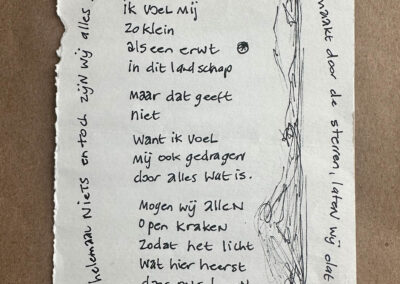 ik voel mij
zo klein
als een erwt
in dit landschap
maar dat geeft
niet
Want ik voel
mij ook gedragen
door alles wat is.
Mogen wij allen
open kraken
zodat het licht
wat hier heerst
helemaal niets en toch zijn wij alles
maakt door de sterren, laten wij dat